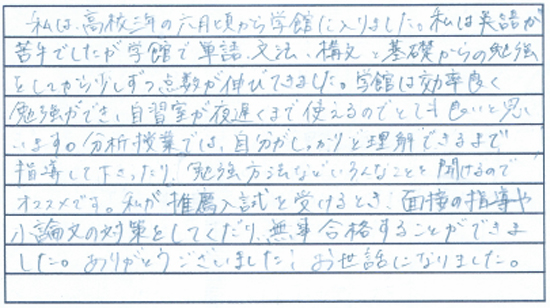 私は、高校三年の六月頃から学館に入りました。私は英語が
苦手でしたが学館で単語、文法、構文と基礎からの勉強
をしてから少しずつ点数が伸びてきました。学館は効率良く
勉強ができ、自習室が夜遅くまで使えるのでとても良いと思
います。分析授業では、自分がしっかりと理解できるまで
指導して下さったり、勉強方法などいろんなことを聞けるので
オススメです。私が推薦入試を受けるとき、面接の指導や
小論文の対策をしてくだり、無事合格することができま
した。ありがとうございました！お世話になりました。